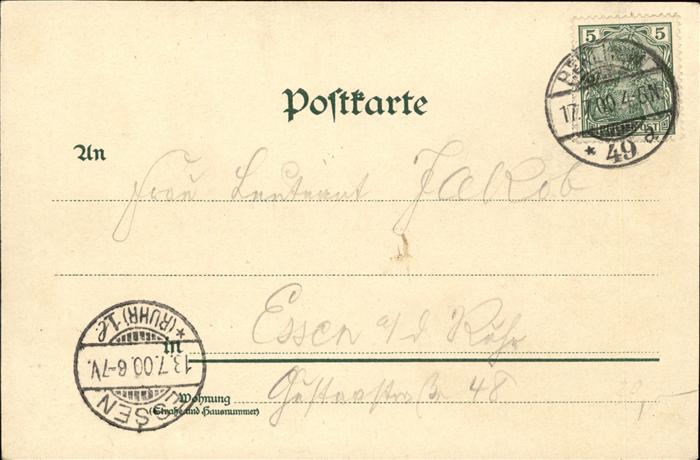 5 5
BERLIN
17.7.00. 4-5N.
* 49 a
Postkarte
An
Frau Leutnant Jakob
Essen a/d Ruhr
in
Wohnung
(Straße und Hausnummer)
48
ESSEN
13.7.00. 6-7V.
*(RUHR) 1.l.